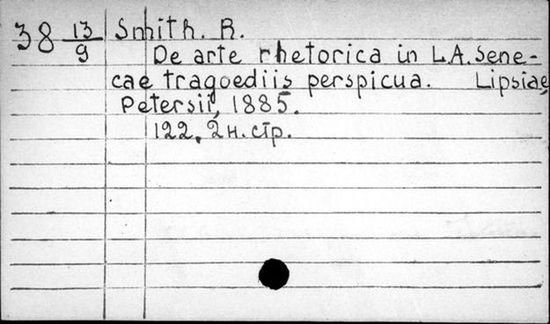 38 13/9 Smith. R.
De arte rhetorica in L.A. Sene-
cae tragoediis perspicua. Lipsiae,
Petersii, 1885.
122, 2 н. стр.